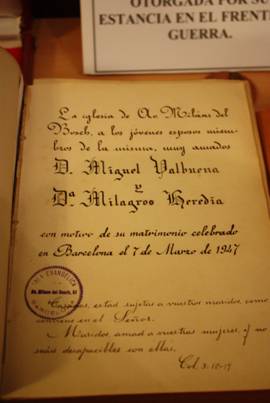 OTORGADA POR SU
ESTANCIA EN EL FRENTE
GUERRA.
La iglesia de Av. Miláns del
Bosch, a los jóvenes esposos miem-
bros de la misma, muy amados
D. Miguel Valbuena
y
Dª Milagros Heredia
con motivo de su matrimonio celebrado
en Barcelona el 7 de Marzo de 1947
EVANGÉLICA
Av. Milans del Bosch, 51
BARCELONA
Casadas, estad sujetas a vuestros maridos, como
conviene en el Señor.
Maridos, amad a vuestras mujeres, y no
seáis desapacibles con ellas.
Col. 3, 18-19